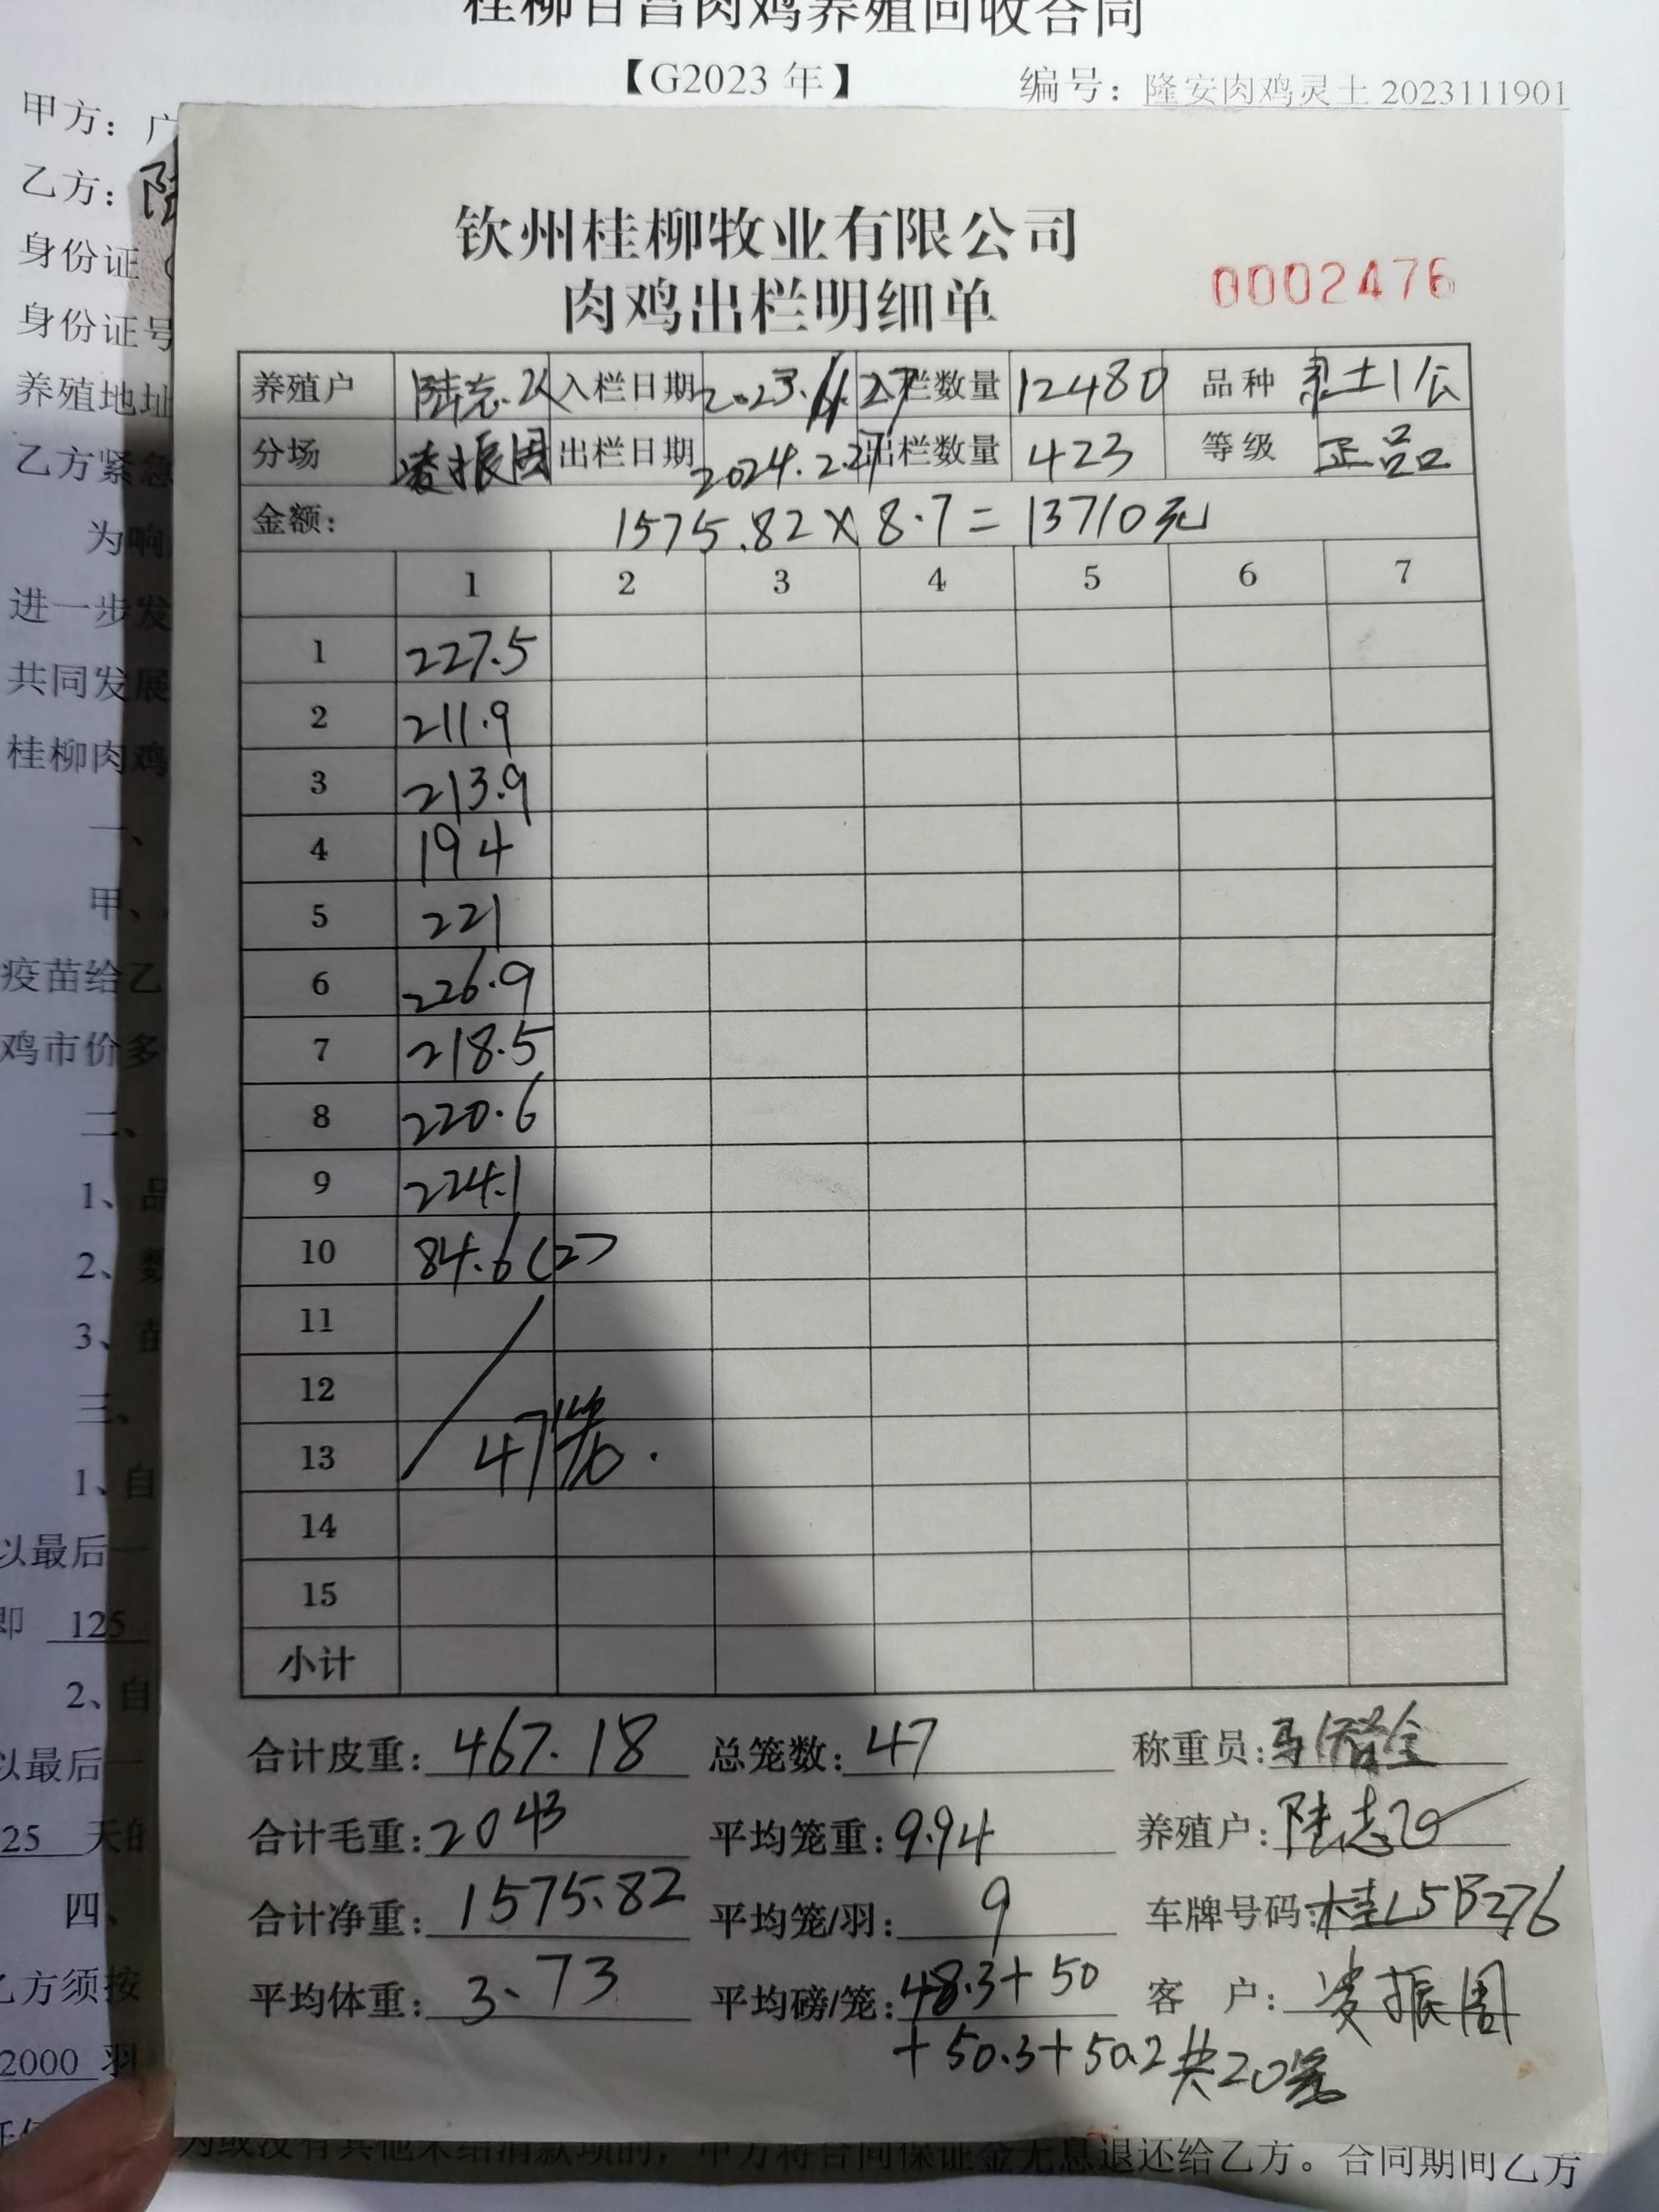 桂柳百宫肉鸡养殖回收合同
【G2023 年】
编号：隆安肉鸡灵土 2023111901
甲方：广
乙方：陆
身份证
身份证号
养殖地址
乙方紧急
为响
进一步发
共同发展
桂柳肉鸡
一、
甲、
疫苗给乙
鸡市价多
二、
1、品
2、数
3、苗
三、
1、自
以最后一
即 125
2、自
以最后一
25 天的
四、
乙方须按
2000 羽
钦州桂柳牧业有限公司
肉鸡出栏明细单
0002476
养殖户 陆志 入栏日期 2023.11.27 入栏数量 12480 品种 灵土1公
分场 凌振周 出栏日期 2024.2.27 出栏数量 423 等级 正品
金额: 1575.82×8.7=13710元
1 2 3 4 5 6 7
1 227.5
2 211.9
3 213.9
4 194
5 221
6 226.9
7 218.5
8 220.6
9 224.1
10 84.6(2)
11
12
13 47笼.
14
15
小计
合计皮重: 467.18 总笼数: 47 称重员: 马
合计毛重: 2043 平均笼重: 9.94 养殖户: 陆志
合计净重: 1575.82 平均笼/羽: 9 车牌号码: 桂L5B276
平均体重: 3.73 平均磅/笼: 48.3+50 客 户: 凌振周
+50.3+50.2共20笼
为或没有其他未结清款项的，甲方将合同保证金无息退还给乙方。合同期间乙方